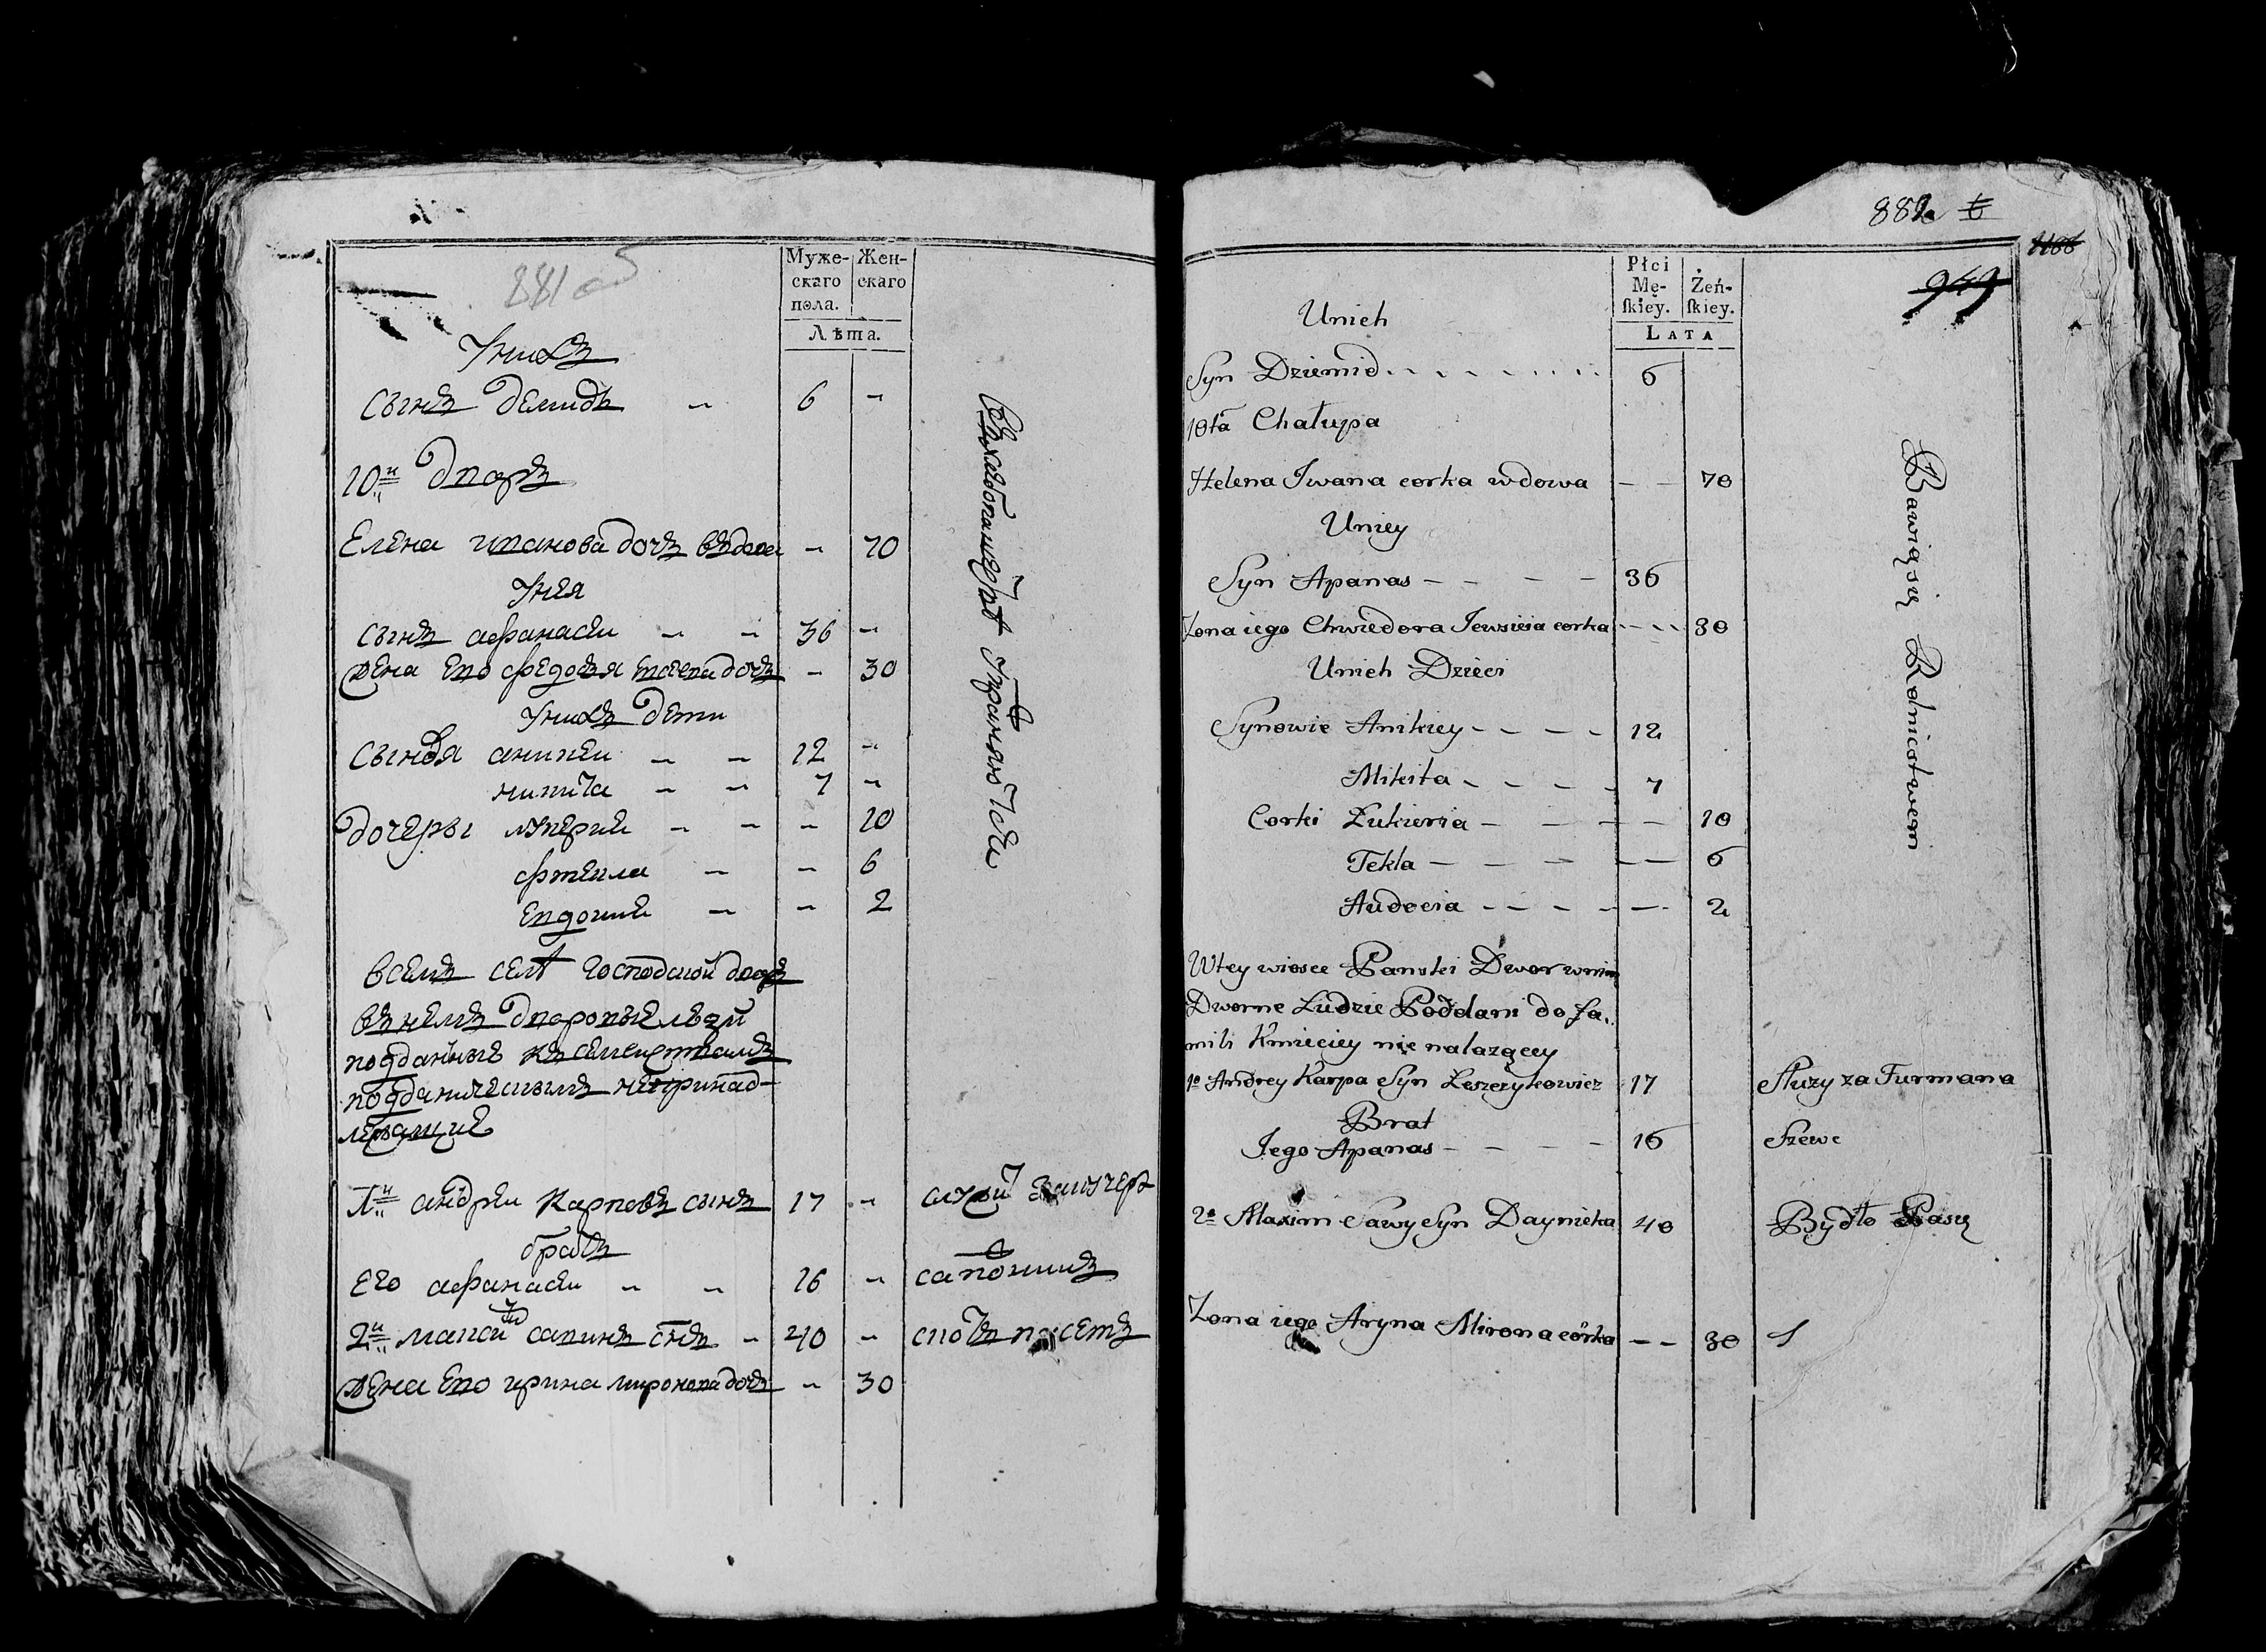 881 об
Муже-
скаго
пола.
Жен-
скаго
Лѣта.
У нихъ
Сынъ Демидъ - 6 -
10й Дворъ
Елена иванова дочь вдова - 70
У нея
Сынъ афанасеи - - 36 -
Жена Его Федося дочь - 30
У нихъ дети
Сыновя аникеи - - 12 -
никита - - 7 -
дочеры лукерия - - - 10
фтекла - - 6
Евдокия - - 2
Всемъ селѣ Господской дворъ
въ немъ Дворовые люди
подданные къ семеиствамъ
подданическимъ непринад-
лежащие
1й андреи Карповъ сынъ 17 -
братъ
Его афанасеи - - 16 - сапожникъ
2й савинъ снъ - 40 - скотъ пасетъ
Жена Его ирина миронова дочь - 30
882
949
Płci
Mę-
ſkiey.
Żeń-
ſkiey.
LATA
Unich
Syn Dziemid 6
10ta Chałupa
Helena Iwana corka wdowa - - 70
Uniey
Syn Apanas - - - - 36
Zona iego Chwiedora Jewsieia corka - - - 30
Unich Dzieci
Synowie Anikiey - - - - 12
Mikita - - - - 7
Corki Łukieria - - - - 10
Tekla - - - - - 6
Audocia - - - - - 2
Bawią się Rolnictwem
Wtey wiosce Panski Dwor wnim
Dworne Ludzie Poddani do Fa-
mili Kmieciey nie nalazącey
1o Andrey Karpa Syn Leszczykowicz 17 Słuzy za Furmana
Brat
Jego Apanas - - - - 16 Szewc
2o Maxim Sawy Syn Daynieka 40 Bydło Pasie
Zona iego Aryna Mirona córka - - 30